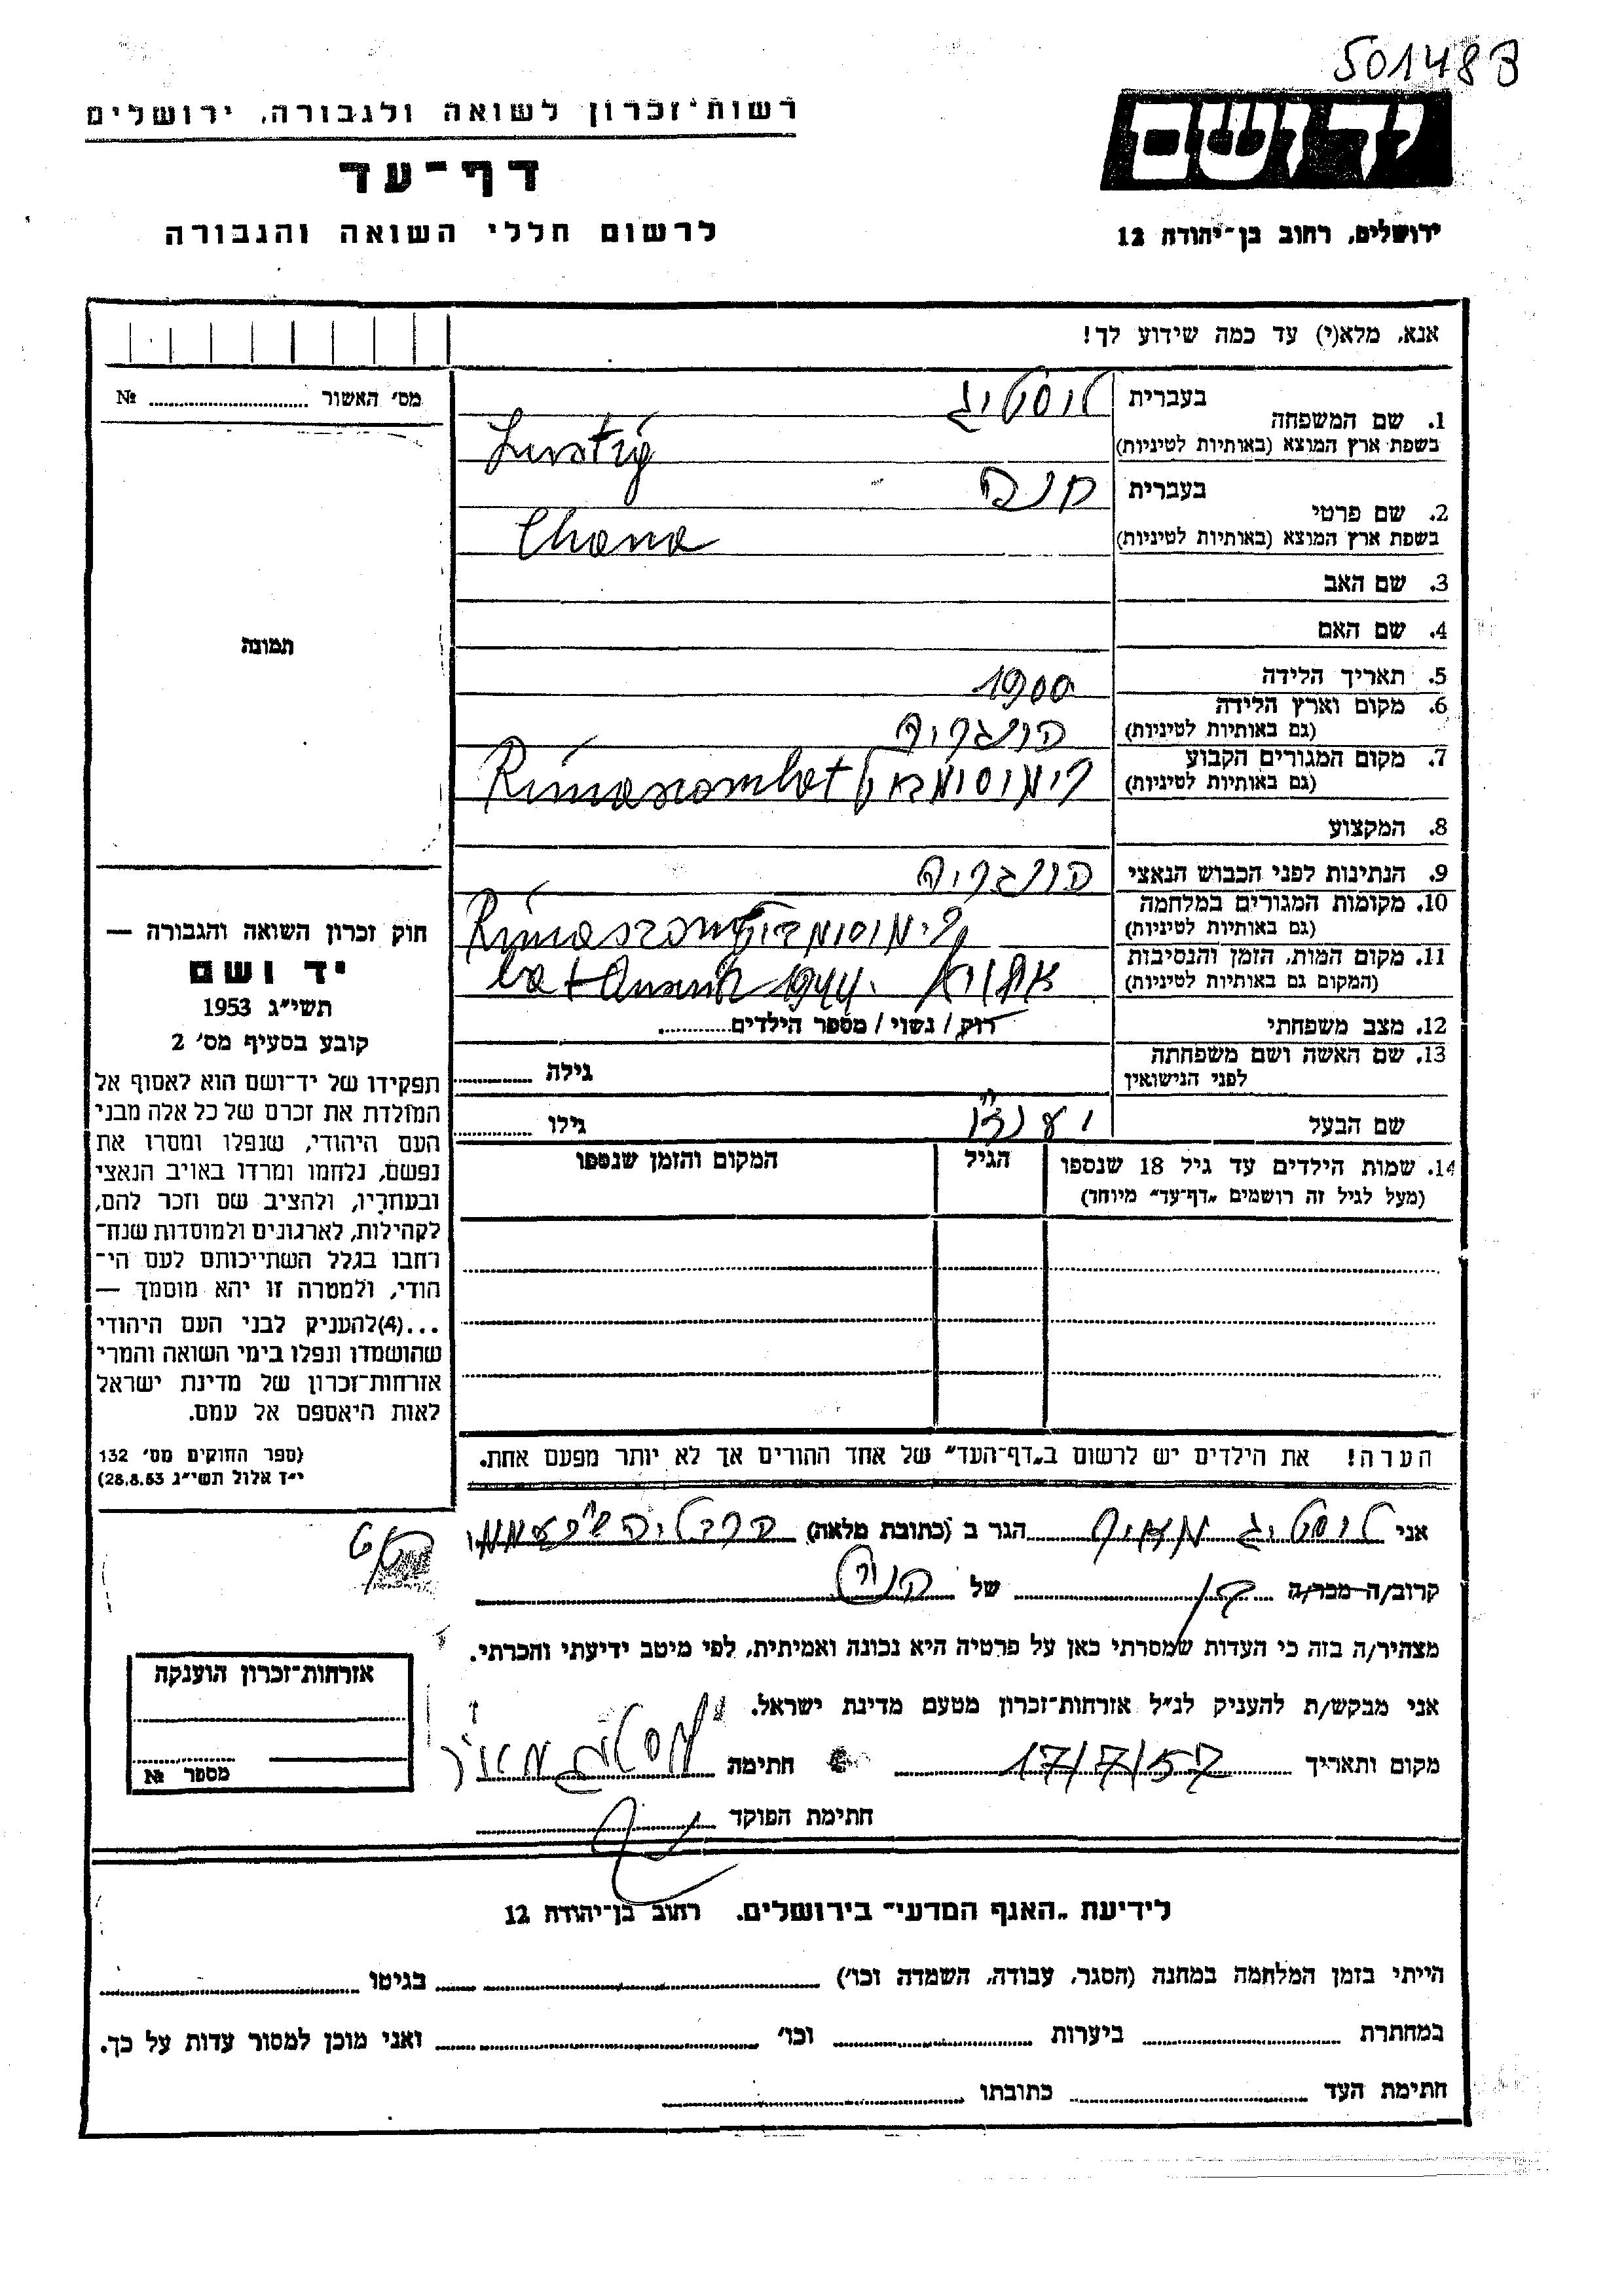 501483
רשות־זכרון לשואה ולגבורה, ירושלים
דף־עד
לרשום חללי השואה והגבורה
ידושם
ירושלים, רחוב בן־יהודה 12
אנא, מלא(י) עד כמה שידוע לך!
מס׳ האשור № 
תמונה
1. שם המשפחה
בעברית לוסטיג
בשפת ארץ המוצא (באותיות לטיניות) Lustig
2. שם פרטי
בעברית חנה
בשפת ארץ המוצא (באותיות לטיניות) Chana
3. שם האב
4. שם האם
5. תאריך הלידה 1900
6. מקום וארץ הלידה
(גם באותיות לטיניות) הונגריה
7. מקום המגורים הקבוע
(גם באותיות לטיניות) רימוסומבאט Rimaszombat
8. המקצוע
9. הנתינות לפני הכבוש הנאצי הונגריה
10. מקומות המגורים במלחמה
(גם באותיות לטיניות) רימוסומבט Rimaszom
11. מקום המות, הזמן והנסיבות
(המקום גם באותיות לטיניות) bat 1944.
12. מצב משפחתי רוק / נשוי / מספר הילדים
13. שם האשה ושם משפחתה
לפני הנישואין גילה
שם הבעל גילו
14. שמות הילדים עד גיל 18 שנספו
(מעל לגיל זה רושמים „דף־עד״ מיוחד)
הגיל
המקום והזמן שנספו
הערה! את הילדים יש לרשום ב„דף־העד״ של אחד ההורים אך לא יותר מפעם אחת.
חוק זכרון השואה והגבורה —
יד ושם
תשי״ג 1953
קובע בסעיף מס׳ 2
תפקידו של יד־ושם הוא לאסוף אל
המולדת את זכרם של כל אלה מבני
העם היהודי, שנפלו ומסרו את
נפשם, נלחמו ומרדו באויב הנאצי
ובעוזריו, ולהציב שם וזכר להם,
לקהילות, לארגונים ולמוסדות שנח־
רבו בגלל השתייכותם לעם הי־
הודי, ולמטרה זו יהא מוסמך —
...(4)להעניק לבני העם היהודי
שהושמדו ונפלו בימי השואה והמרי
אזרחות־זכרון של מדינת ישראל
לאות היאספם אל עמם.
(ספר החוקים מס׳ 132
י״ד אלול תשי״ג 28.8.53)
אני לוסטיג מאיר הגר ב (כתובת מלאה)
קרוב/ה מכר/ה בן של
מצהיר/ה בזה כי העדות שמסרתי כאן על פרטיה היא נכונה ואמיתית, לפי מיטב ידיעתי והכרתי.
אני מבקש/ת להעניק לנ״ל אזרחות־זכרון מטעם מדינת ישראל.
מקום ותאריך 17/7/57 חתימה לוסטיג מאיר
חתימת הפוקד
אזרחות־זכרון הוענקה
מספר №
לידיעת „האגף המדעי״ בירושלים, רחוב בן־יהודה 12
הייתי בזמן המלחמה במחנה (הסגר, עבודה, השמדה וכו׳) בגיטו
במחתרת ביערות וכו׳ ואני מוכן למסור עדות על כך.
חתימת העד כתובתו